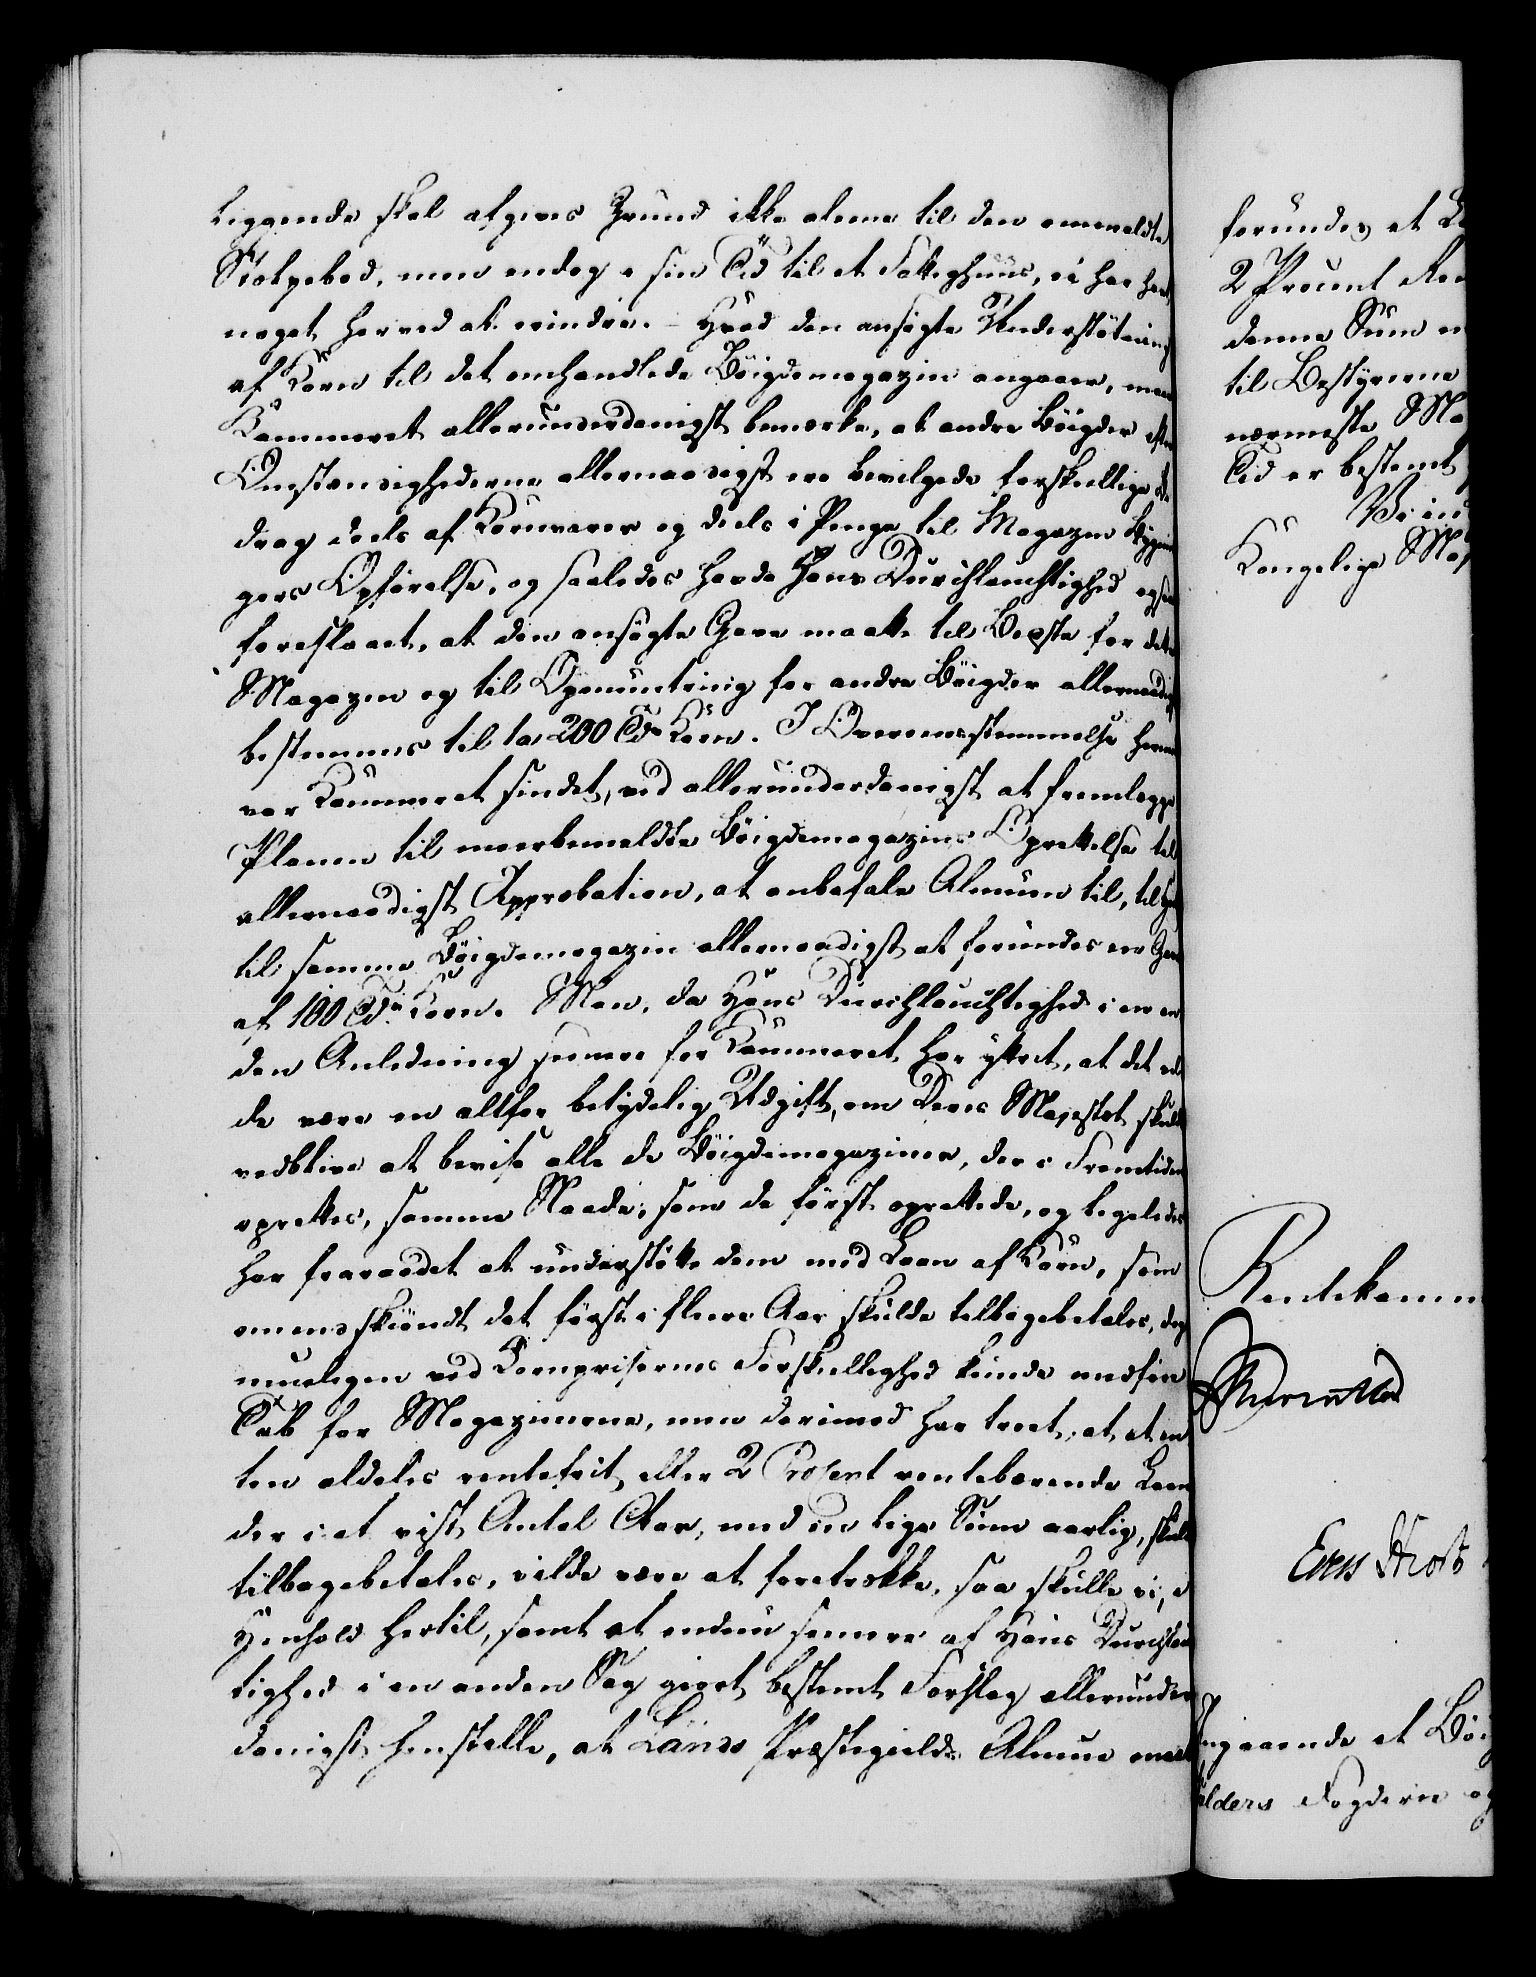 liggende skal afgives Grund ikke alene til den ommeldte
Stolpebod, men endog i sin Tid til et Fattighuus, vi har
noget herved at erindre. – Hvad den ansøgte Understøttning
af Korn til det omhandlede Bøigdemagazin angaaer, maae
Kammeret allerunderdanigst bemærke, at andre Bøigder efter
Omstændighederne allernaadigst ere bevilgede forskiellige Bi
drag deels af Kornvarer og deels i Penge til Magazin Bygnin
gers Opførelse, og saaledes havde Hans Durchlauchtighed ogsaa
foreslaaet, at den ansøgte Gave maatte til Beedste for dette
Magazin og til Opmuntring for andre Bøigder allernaadigst
bestemmes til 200 Tdr Korn. I Overeensstemmelse herved
var Kammeret sindet, ved allerunderdanigst at fremlægge
Planen til meerbemeldte Bøigdemagazins Oprettelse til
allernaadigst Approbation, at anbefale Almuen til,
til samme Bøigdemagazin allernaadigst at forundes en Gave
af 100 Tdr Korn. Men, da Hans Durchlauchtighed i en an
den Anledning senere for Kammeret har yttret, at det vil
de være en altfor betydelig Udgift, om Deres Majestæt skulde
vedblive at bevise alle de Bøigdemagaziner, der i Fremtiden
oprettes, samme Naade, som de først oprettede, og ligeledes
har fraraadet at understøtte dem med Laan af Korn, som
omendskiøndt det først i flere Aar skulde tilbagebetales, dog
mueligen ved Kornprisernes Forskiellighed kunde medføre
Tab for Magazinerne, men derimod har troet, at et en
ten aldeles rentefrit eller 2 Procent rentebærende Laan
der i et vist Antal Aar, med en lige Sum aarlig, skulde
tilbagebetales, vilde være at foretrække, saa skulle vi, i
Henhold hertil, samt et endnu senere af Hans Durchlauch
tighed i en anden Sag giort bestemt Forslag allerunder
danigst henstille, at Länes Præstegields Almue maatte
forundes et
2 Procent
denne Sum
til Bestyrerne
nærmeste
Tid er bestemt
Kongelige
Rentekamm
ngaaende et Bøig
ælders Fogderie og